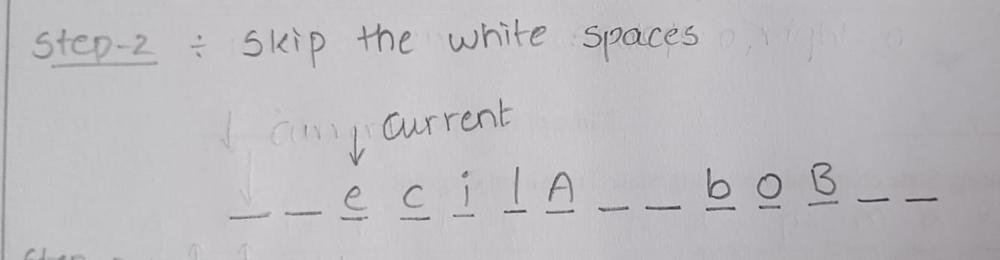 Step-2 ÷ Skip the white spaces
current
_ _ e c i l A _ _ b o B _ _